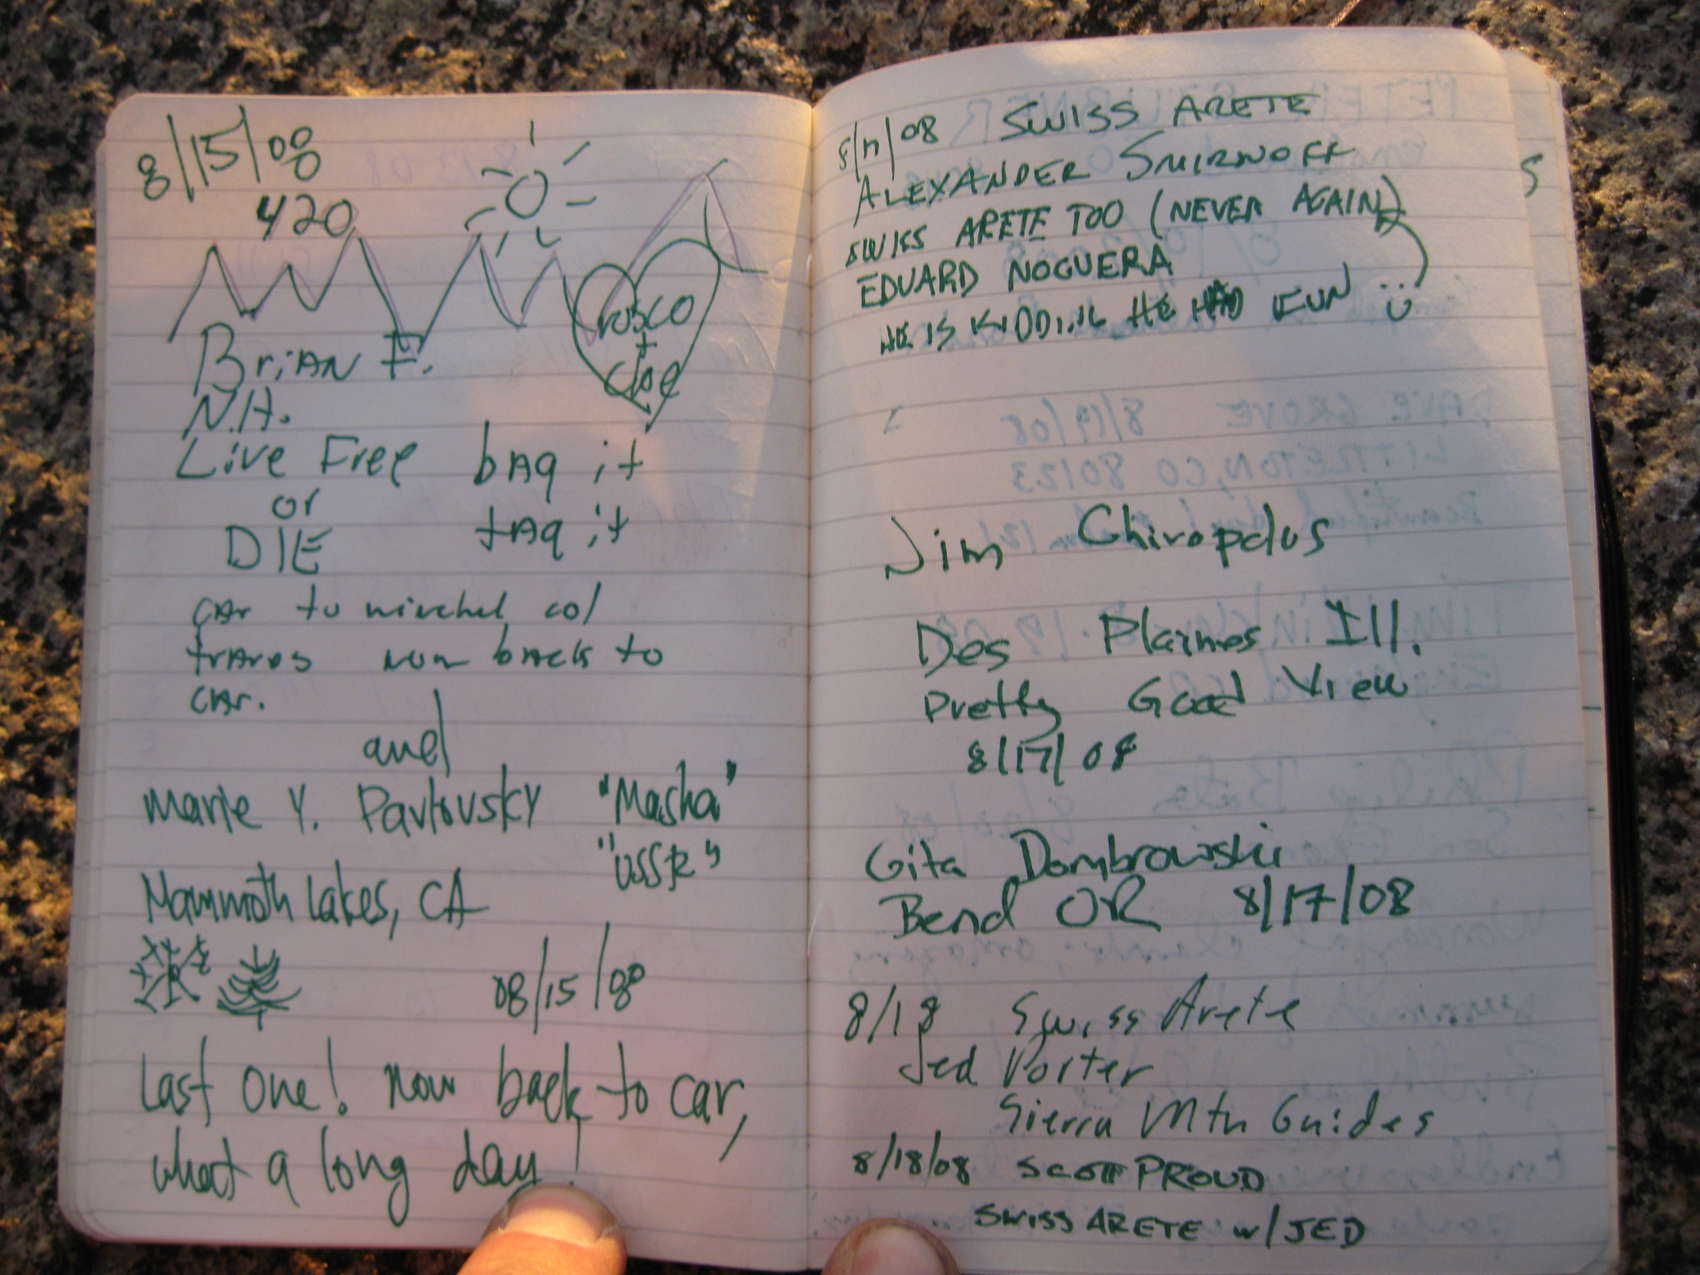 8/15/08
420
Rosco
+
Cloe
Brian F.
N.H.
Live Free bag it
or
DIE tag it
car to winchel col
now back to
car.
and
Marie Y. Pavlovsky "Masha"
"USSR"
Mammoth Lakes, CA
08/15/08
Last one! Now back to car,
what a long day!
8/17/08 SWISS ARETE
ALEXANDER SMIRNOFF
SWISS ARETE TOO (NEVER AGAIN)
EDUARD NOGUERA
HE IS KIDDING HE HAD FUN
Jim Chiropolos
Des Plaines Ill.
Pretty Good View
8/17/08
Gita Dombrowski
Bend OR 8/17/08
8/18 Swiss Arete
Jed Porter
Sierra Mtn Guides
8/18/08 SCOTT PROUD
SWISS ARETE w/ JED
DAVE GROVE 8/19/08
LITTLETON, CO 80123